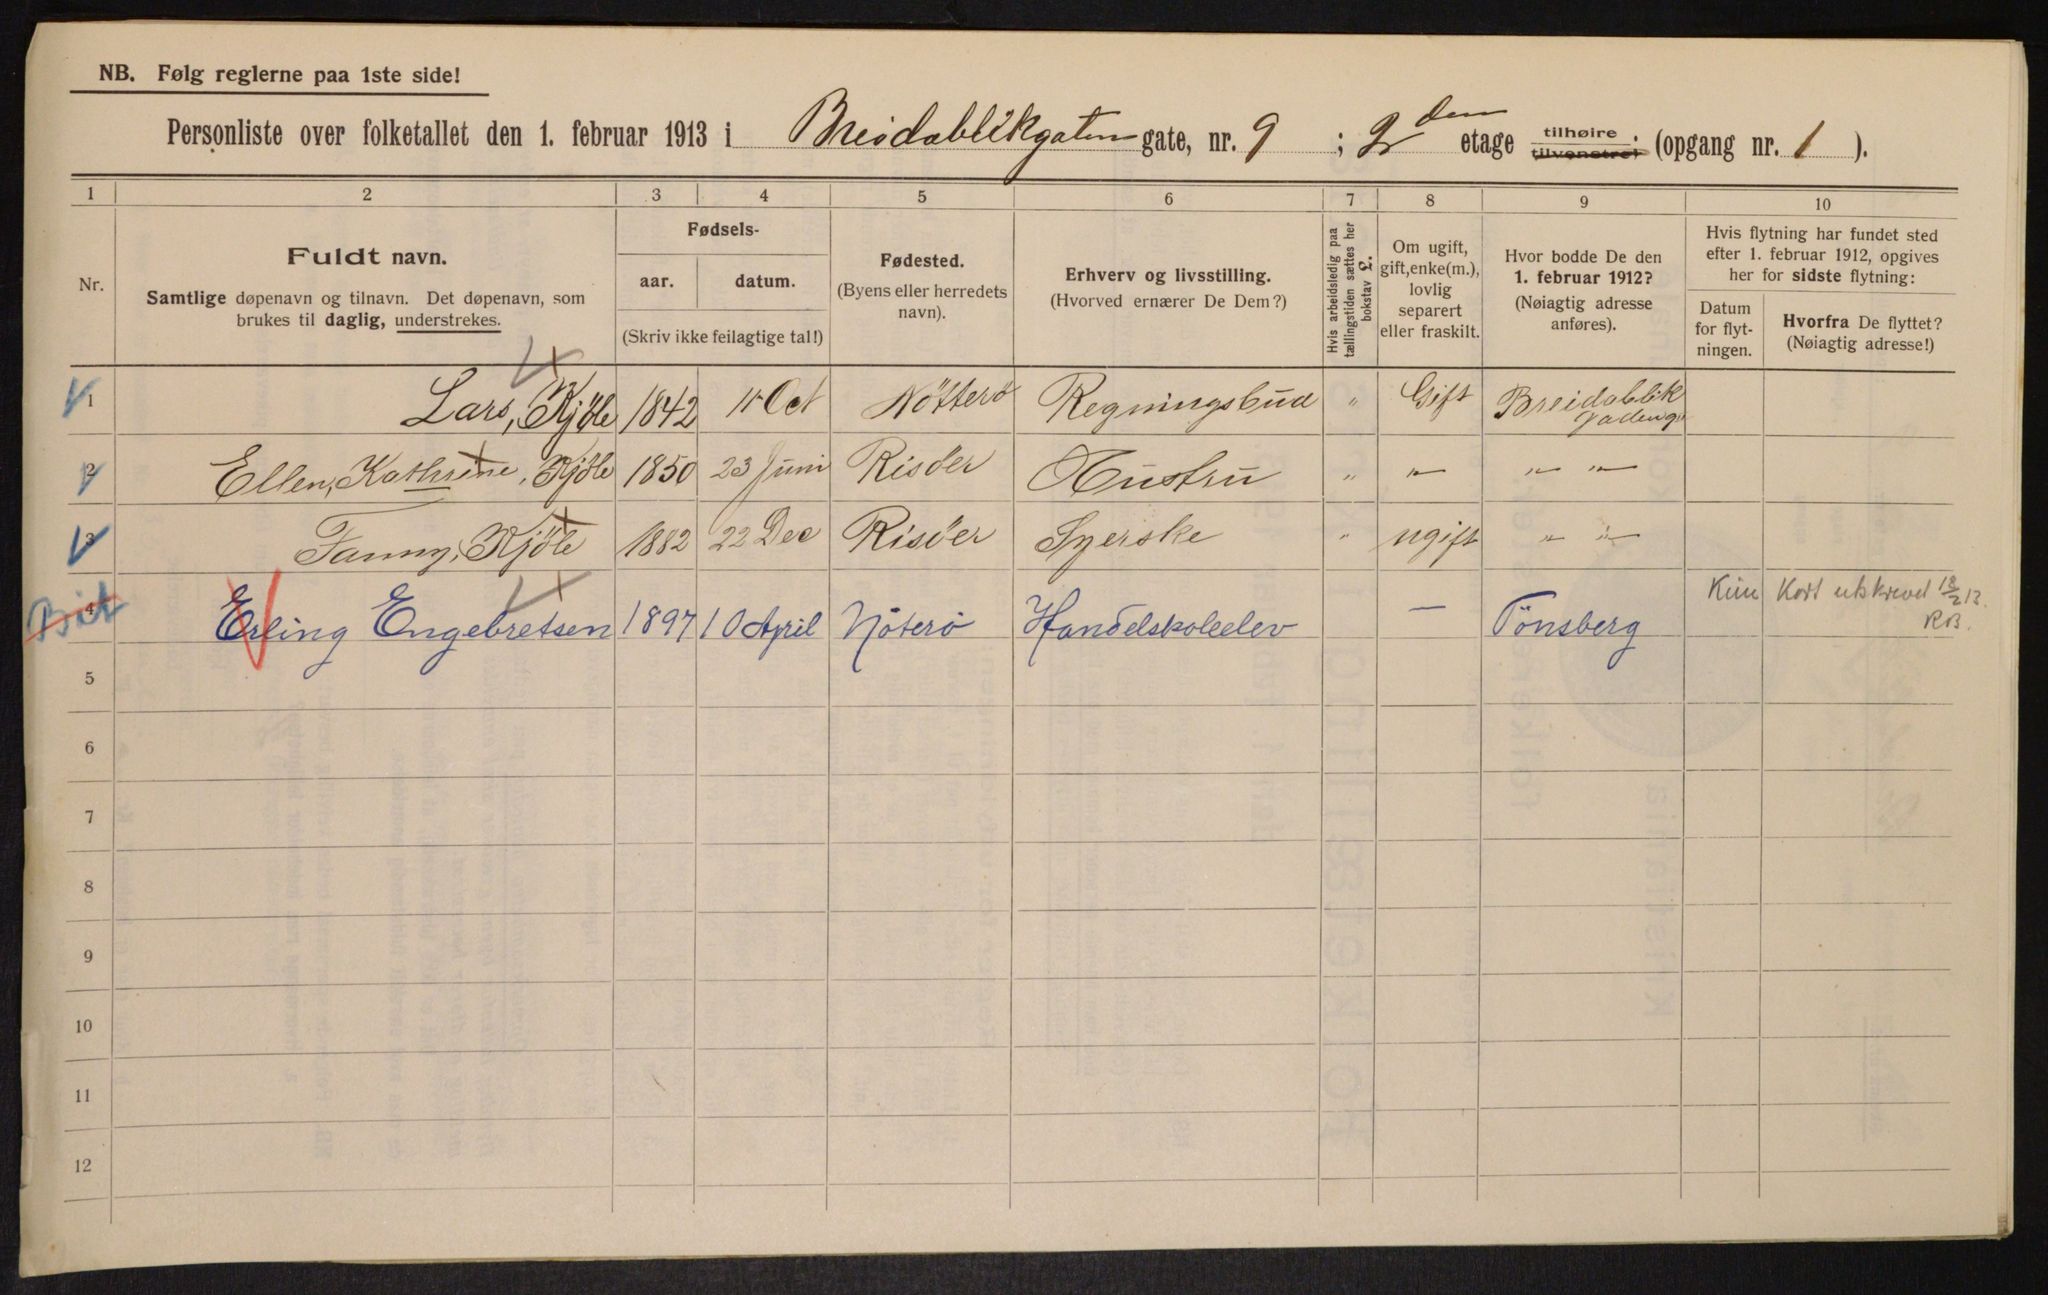 NB. Følg reglerne paa 1ste side!
Personliste over folketallet den 1. februar 1913 i Breidablikgaten gate, nr. 9 ; 2den etage tilhøire tilvenstre: (opgang nr. 1 ).
1 2 3 4 5 6 7 8 9 10
Nr.
Fuldt navn.
Samtlige døpenavn og tilnavn. Det døpenavn, som
brukes til daglig, understrekes.
Fødsels-
aar. datum.
(Skriv ikke feilagtige tal!)
Fødested.
(Byens eller herredets
navn).
Erhverv og livsstilling.
(Hvorved ernærer De Dem?)
Hvis arbeidsledig paa
tællingstiden sættes her
bokstav L.
Om ugift,
gift, enke(m.),
lovlig
separert
eller fraskilt.
Hvor bodde De den
1. februar 1912?
(Nøiagtig adresse
anføres).
Hvis flytning har fundet sted
efter 1. februar 1912, opgives
her for sidste flytning:
Datum
for flyt-
ningen.
Hvorfra De flyttet?
(Nøiagtig adresse!)
1 Lars, Kjöle 1842 11 Oct Nötterö Regningsbud " Gift Breidablik
gaden 9
2 Ellen, Kathrine, Kjöle 1850 23 Juni Risöer Hustru " " " "
3 Fanny, Kjöle 1882 22 Dec Risöer Syerske " ugift " "
4 Erling Engebretsen 1897 10 April Nøterö Handelskoleelev — Tönsberg Kun Kort utskrevet 18/2 13.
RB.
5
6
7
8
9
10
11
12